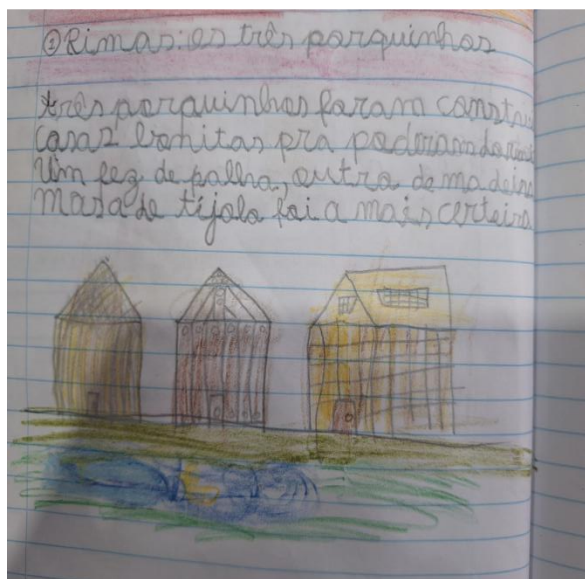 ① Rimas: os três porquinhos
três porquinhos foram constru
casas bonitas pra poderam dormi
Um fez de palha, outro de madeira
mas a de tijolo foi a mais certeira